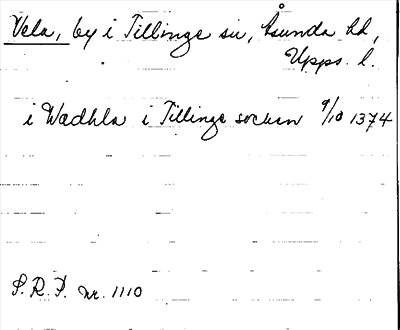 Vela, by i Tillinge sn, Åsunda hd,
Upps. l.
i Wædhla i Tillinge socken 9/10 1374
S.R.P. nr. 1110